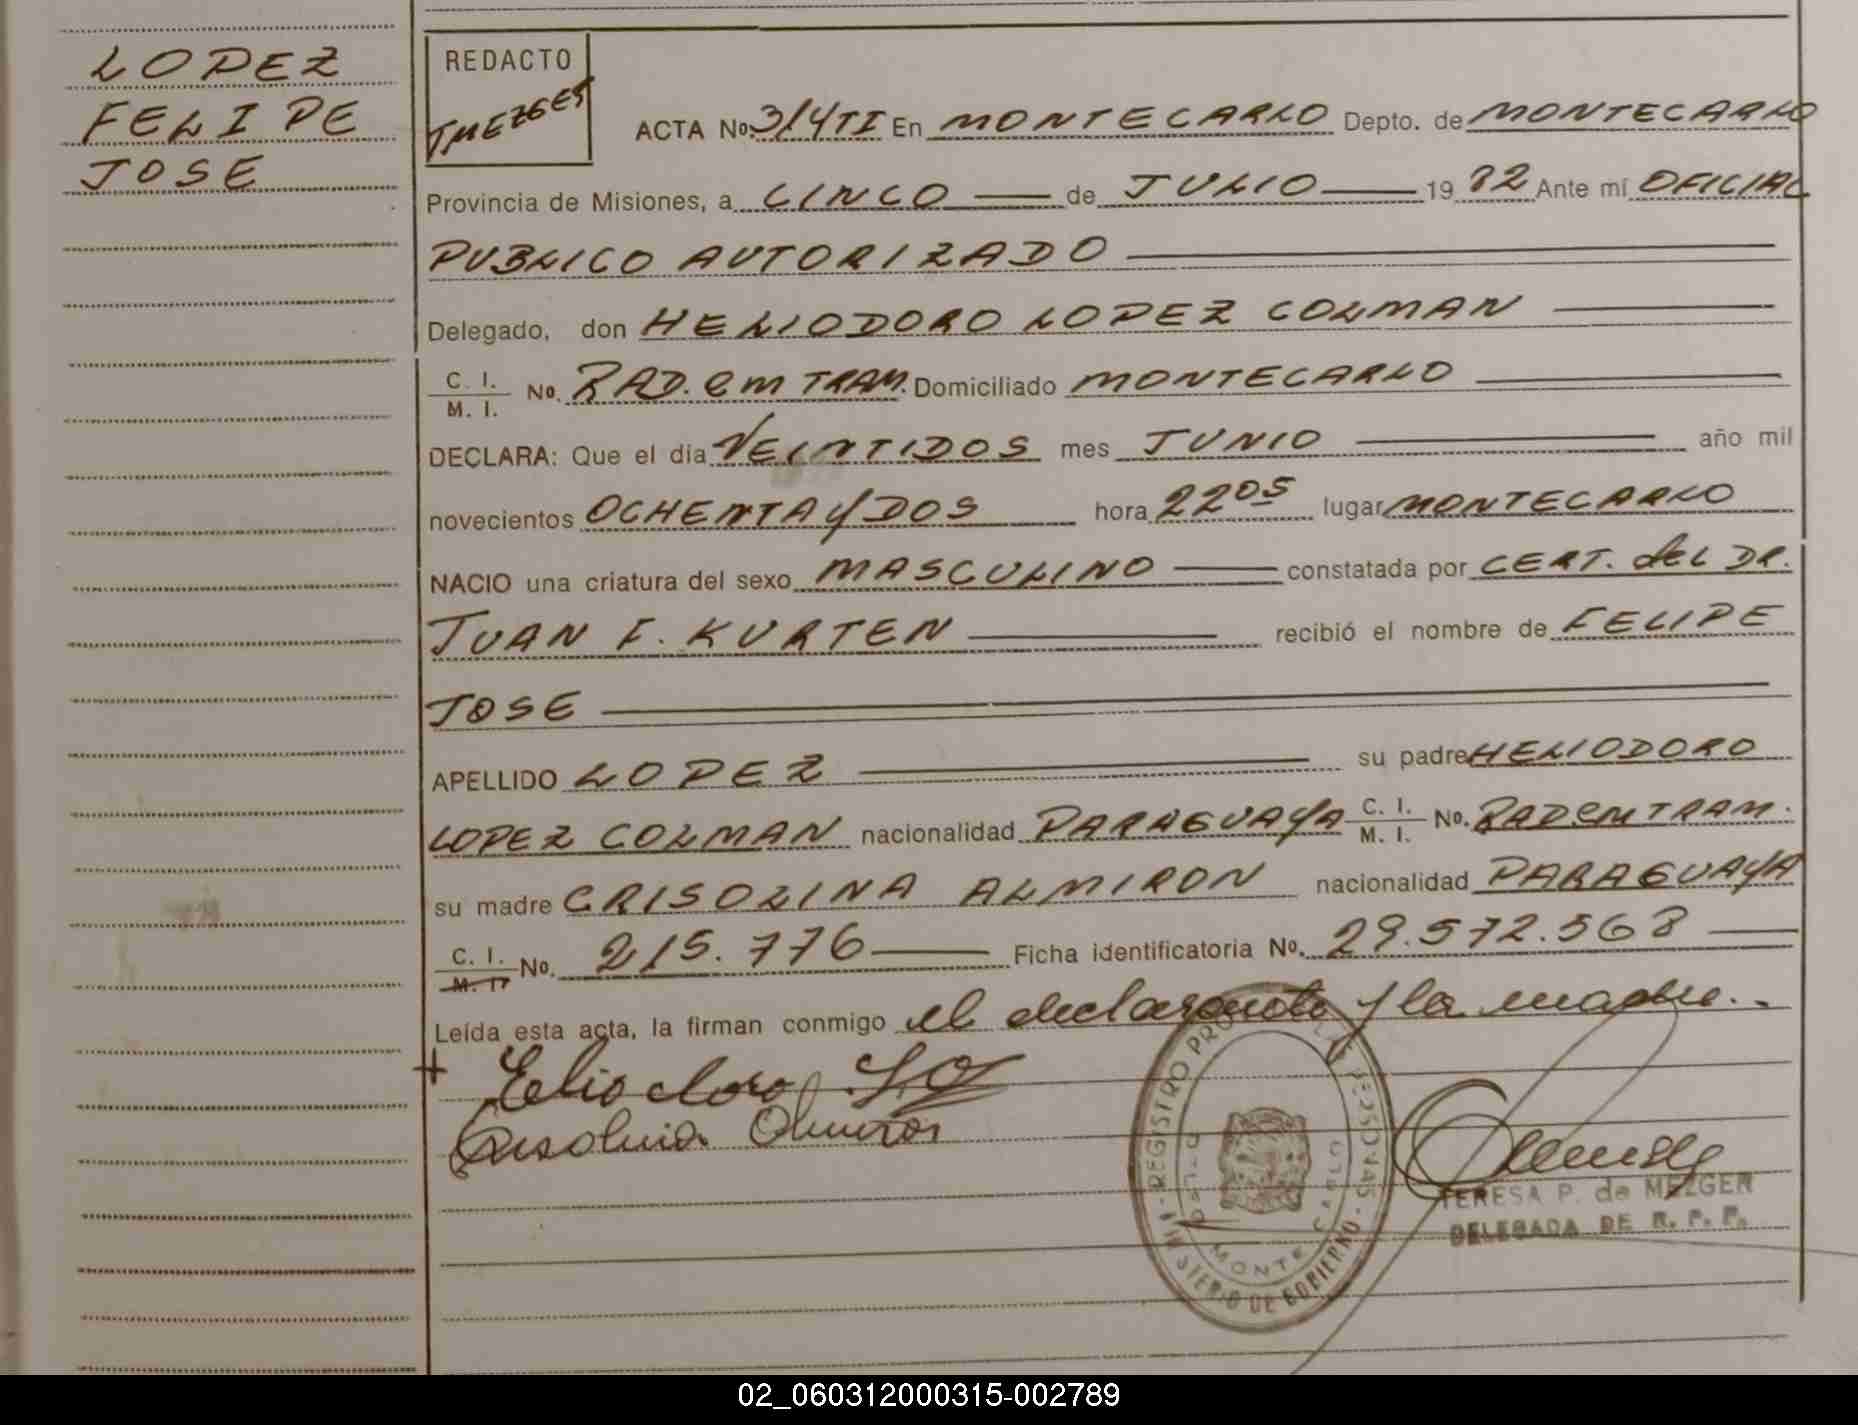 LOPEZ
FELIPE
JOSE
REDACTO
TMEZGER
ACTA No. 314TI En MONTECARLO Depto. de MONTECARLO
Provincia de Misiones, a CINCO de JULIO 1982 Ante mí OFICIAL
PUBLICO AUTORIZADO
Delegado, don HELIODORO LOPEZ COLMAN
C. I. / M. I. No. RAD. em TRAM. Domiciliado MONTECARLO
DECLARA: Que el día VEINTIDOS mes JUNIO año mil
novecientos OCHENTA y DOS hora 22 05 lugar MONTECARLO
NACIO una criatura del sexo MASCULINO constatada por CERT. del DR.
JUAN F. KURTEN recibió el nombre de FELIPE
JOSE
APELLIDO LOPEZ su padre HELIODORO
LOPEZ COLMAN nacionalidad PARAGUAYA C. I. / M. I. No. RAD em TRAM.
su madre CRISOLINA ALMIRON nacionalidad PARAGUAYA
C. I. / M. I. No. 215.776 Ficha identificatoria No. 29.572.568
Leída esta acta, la firman conmigo el declarante y la madre.
REGISTRO
MINISTERIO DE GOBIERNO
MONTE CARLO
TERESA P. de MEZGER
DELEGADA DE R. P. P.
02_060312000315-002789